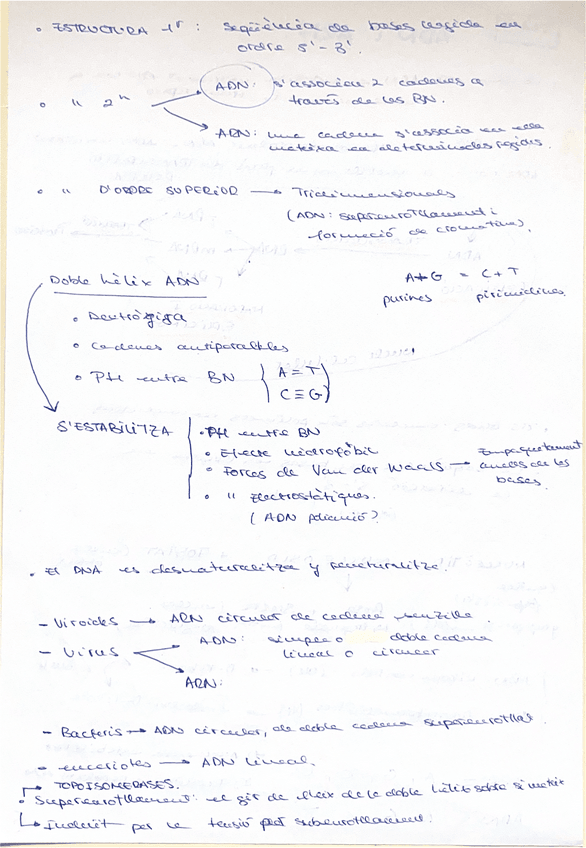 • ESTRUCTURA 1ª: seqüència de bases llegida en
ordre 5' - 3'.
• " 2ª → ADN: s'associen 2 cadenes a
través de les BN.
→ ARN: una cadena s'associa en ella
mateixa en determinades regions.
• " D'ORDRE SUPERIOR → Tridimensionals
(ADN: superenrotllament i
formació de cromatina).
Doble hèlix ADN
A+G = C+T
purines pirimidines
• Dextrògira
• Cadenes antiparal·leles
• PH entre BN
A = T
C ≡ G
S'ESTABILITZA
• PH entre BN
• Efecte hidrofòbic
• Forces de Van der Waals → Empaquetament
anells de les
bases
• " Electrostàtiques.
(ADN polianió)
• El DNA es desnaturalitza y renaturalitza.
- Viroides → ARN circular de cadena senzilla
- Virus → ADN: simple o doble cadena
lineal o circular
→ ARN:
- Bacteris → ADN circular, de doble cadena superenrotllat.
- eucariotes → ADN lineal.
→ TOPOISOMERASES.
• Superenrotllament: el gir de l'eix de la doble hèlix sobre si mateix
→ Induït per la tensió pel subenrotllament.